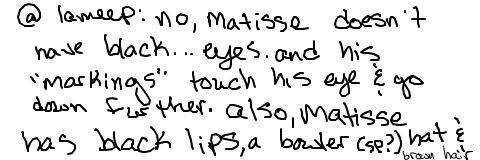 @ lameep: no, Matisse doesn't
have black... eyes. and his
"markings" touch his eye & go
down further. also, Matisse
has black lips, a bowler (sp?) hat &
brown hair